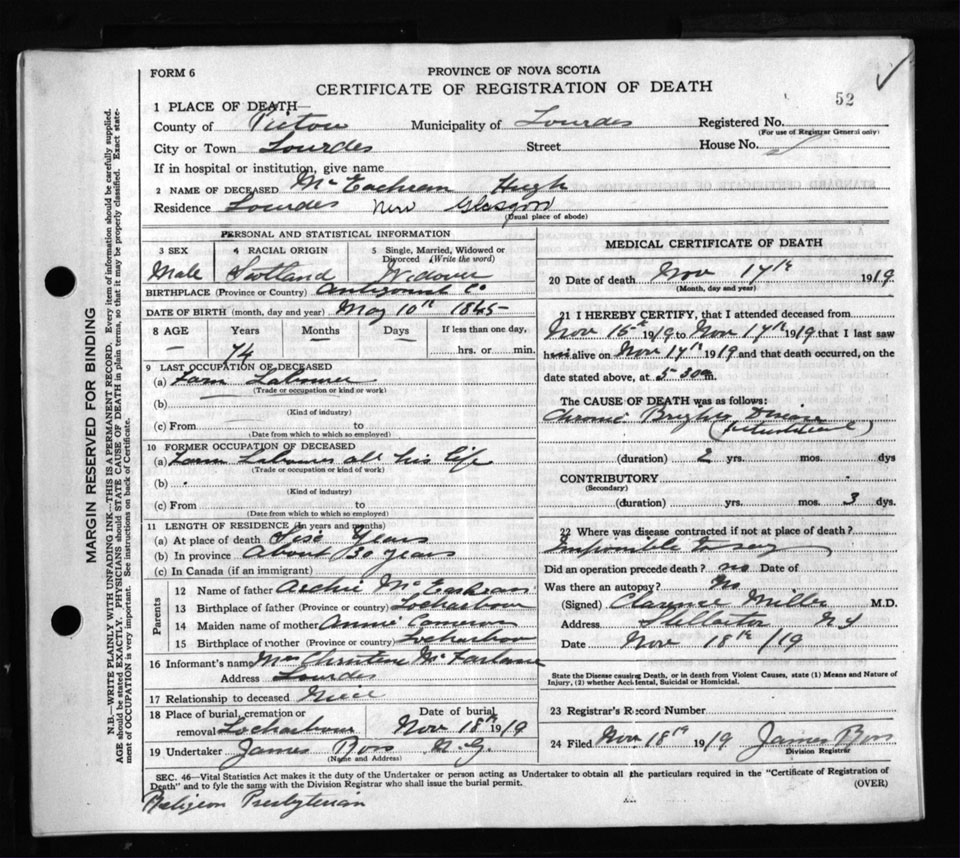 FORM 6
PROVINCE OF NOVA SCOTIA
CERTIFICATE OF REGISTRATION OF DEATH
52
1 PLACE OF DEATH—
County of Pictou Municipality of Lourdes Registered No.
(For use of Registrar General only)
City or Town Lourdes Street House No.
If in hospital or institution, give name
2 NAME OF DECEASED McEachran Hugh
Residence Lourdes New Glasgow
(Usual place of abode)
PERSONAL AND STATISTICAL INFORMATION
3 SEX 4 RACIAL ORIGIN 5 Single, Married, Widowed or Divorced (Write the word)
Male Scotland Widower
BIRTHPLACE (Province or Country) Antigonish Co
DATE OF BIRTH (month, day and year) May 10th 1845
8 AGE Years Months Days If less than one day,
— 74 hrs. or min.
9 LAST OCCUPATION OF DECEASED
(a) Farm Labourer
(Trade or occupation or kind or work)
(b)
(Kind of industry)
(c) From to
(Date from which to which so employed)
10 FORMER OCCUPATION OF DECEASED
(a) Farm Labourer all his life
(Trade or occupation or kind of work)
(b)
(Kind of industry)
(c) From to
(Date from which to which so employed)
11 LENGTH OF RESIDENCE (In years and months)
(a) At place of death Years
(b) In province About 30 years
(c) In Canada (if an immigrant)
Parents
12 Name of father Archie McEachran
13 Birthplace of father (Province or country) Locharbour
14 Maiden name of mother Annie Cameron
15 Birthplace of mother (Province or country) Locharbour
16 Informant's name Mrs McFarlane
Address Lourdes
17 Relationship to deceased Niece
18 Place of burial, cremation or removal Locharbour
Date of burial Nov 18th 1919
19 Undertaker James Ross N.G.
(Name and Address)
MEDICAL CERTIFICATE OF DEATH
20 Date of death Nov 17th 1919
(Month, day and year)
21 I HEREBY CERTIFY, that I attended deceased from
Nov 16th 1919 to Nov 17th 1919 that I last saw
him alive on Nov 17th 1919 and that death occurred, on the
date stated above, at 5-30 m.
The CAUSE OF DEATH was as follows:
Chronic Brights Disease
(duration) 2 yrs. mos. dys
CONTRIBUTORY
(Secondary)
(duration) yrs. mos. 3 dys.
22 Where was disease contracted if not at place of death?
Impossible to say
Did an operation precede death? no Date of
Was there an autopsy? No
(Signed) Clarence Miller M.D.
Address Stellarton NS
Date Nov 18th/19
State the Disease causing Death, or in death from Violent Causes, state (1) Means and Nature of
Injury, (2) whether Accidental, Suicidal or Homicidal.
23 Registrar's Record Number
24 Filed Nov. 18th 1919 James Ross
Division Registrar
SEC. 46—Vital Statistics Act makes it the duty of the Undertaker or person acting as Undertaker to obtain all the particulars required in the "Certificate of Registration of
Death" and to fyle the same with the Division Registrar who shall issue the burial permit. (OVER)
Religion Presbyterian
MARGIN RESERVED FOR BINDING
N.B.—WRITE PLAINLY WITH UNFADING INK—THIS IS A PERMANENT RECORD. Every item of information should be carefully supplied.
AGE should be stated EXACTLY. PHYSICIANS should STATE CAUSE OF DEATH in plain terms, so that it may be properly classified. Exact state-
ment of OCCUPATION is very important. See instructions on back of Certificate.